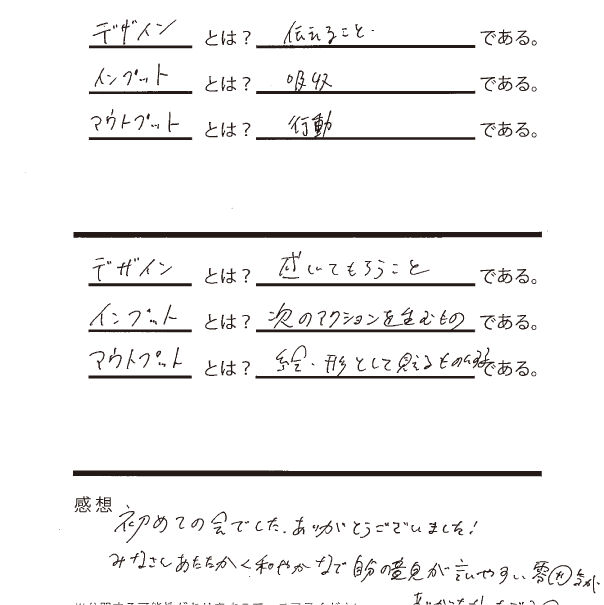 デザイン とは? 伝えること. である。
インプット とは? 吸収 である。
アウトプット とは? 行動 である。
デザイン とは? 感いてもらうこと である。
インプット とは? 次のアクションを生むもの である。
アウトプット とは? 絵・形として見えるもの である。
感想
初めての会でした。ありがとうございました!
みなさんあたたかく和やかな で自分の意見が言いやすい雰囲気が